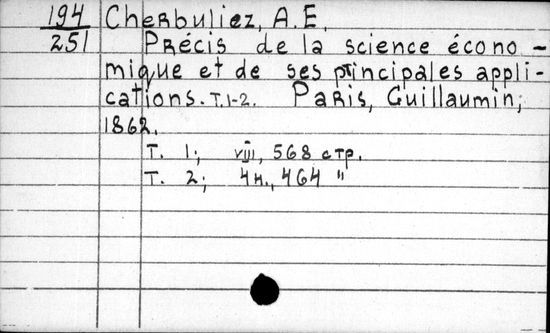 194 Cherbuliez, A.E.
251 Précis de la science écono-
mique et de ses principales appli-
cations. T. 1-2. Paris, Guillaumin,
1862.
T. 1; VIII, 568 стр.
T. 2; 4н., 464 "